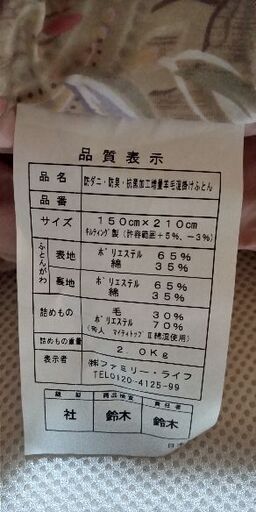 品質表示
品名 防ダニ・防臭・抗菌加工増量羊毛混掛けふとん
品番
サイズ 150cm×210cm
キルティング製 (許容範囲+5%、-3%)
ふとんがわ 表地 ポリエステル 65%
綿 35%
裏地 ポリエステル 65%
綿 35%
詰めもの 毛 30%
ポリエステル 70%
(帝人 マイティトップⅡ綿混使用)
詰めもの重量 2.0Kg
表示者 (株)ファミリー・ライフ
TEL0120-4125-99
縫製 商品検査 責任者
社 鈴木 鈴木